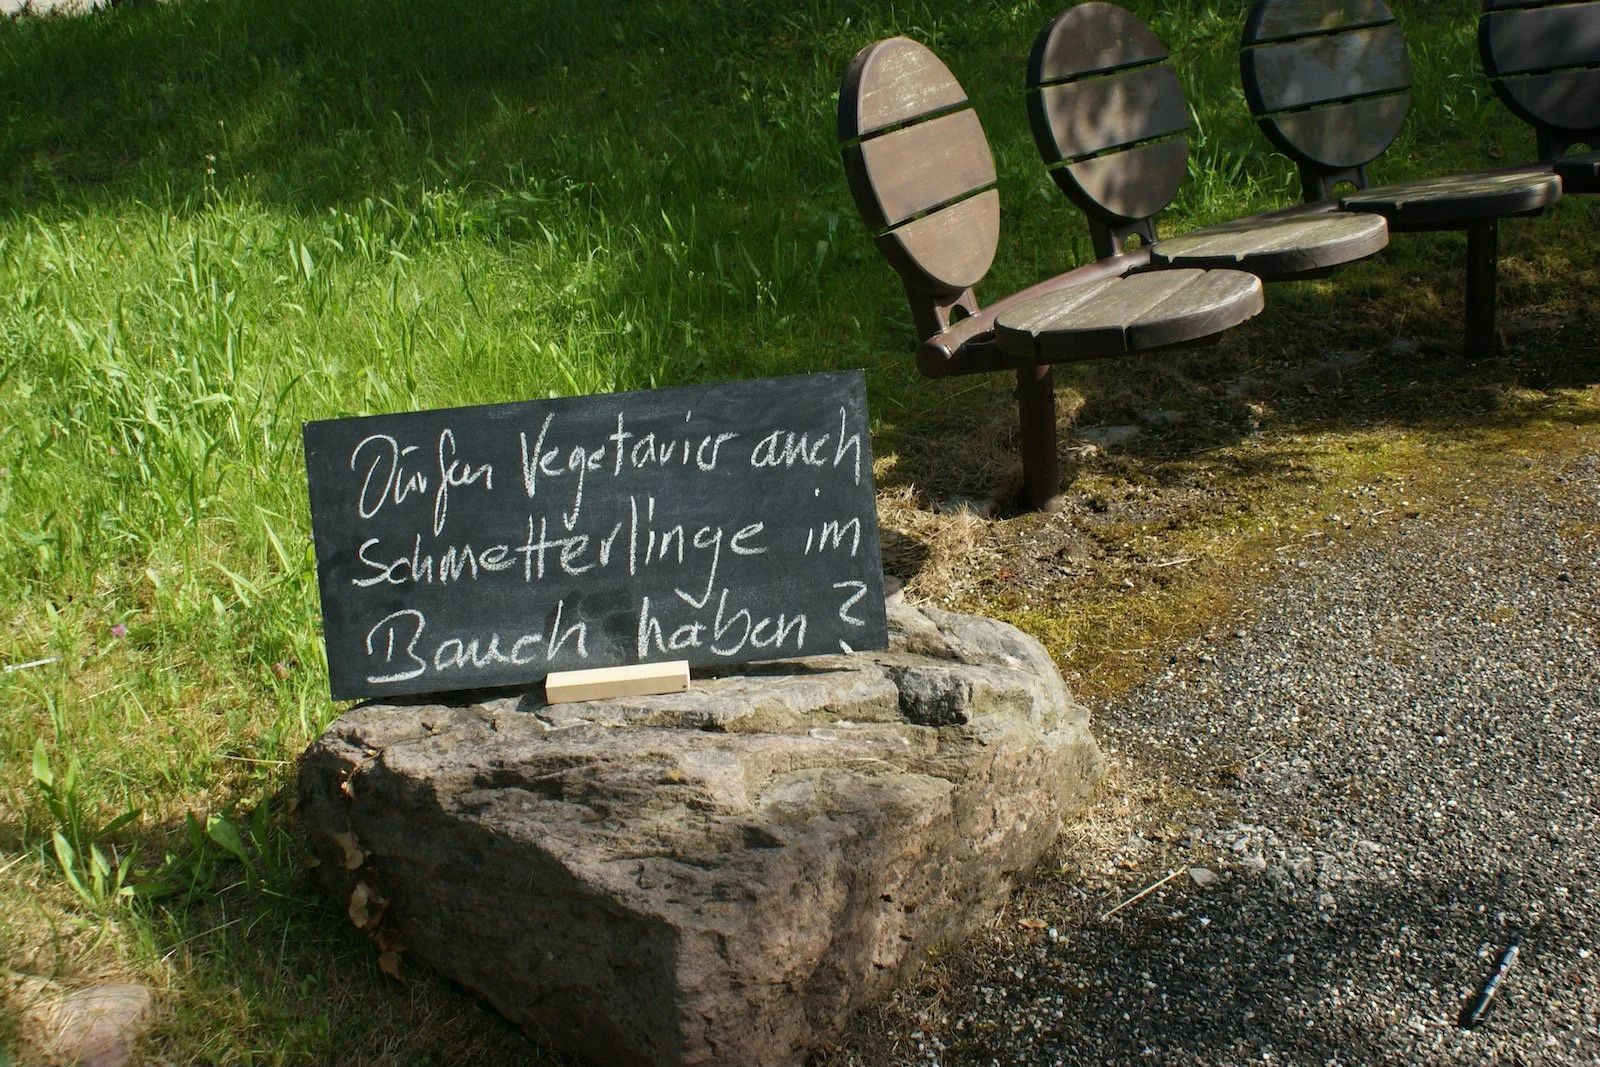 Dürfen Vegetarier auch
Schmetterlinge im
Bauch haben?